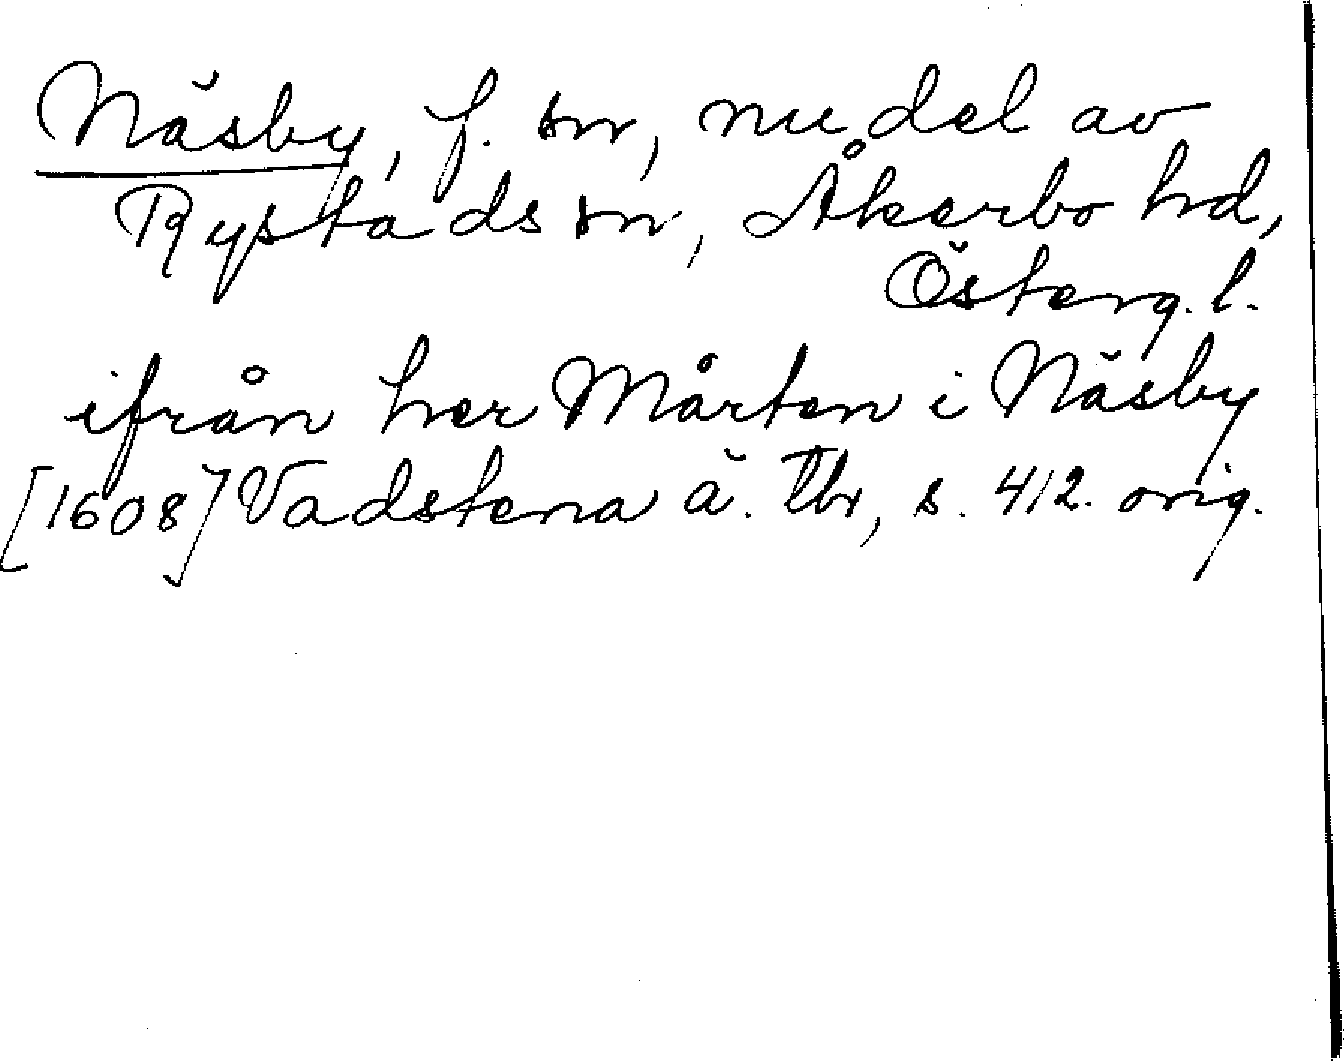 Näsby, f. sn, nu del av
Rystads sn, Åkerbo hd,
Österg. l.
ifrån her Mårten i Näsby
[1608] Vadstena ä. Tbr, s. 412. orig.